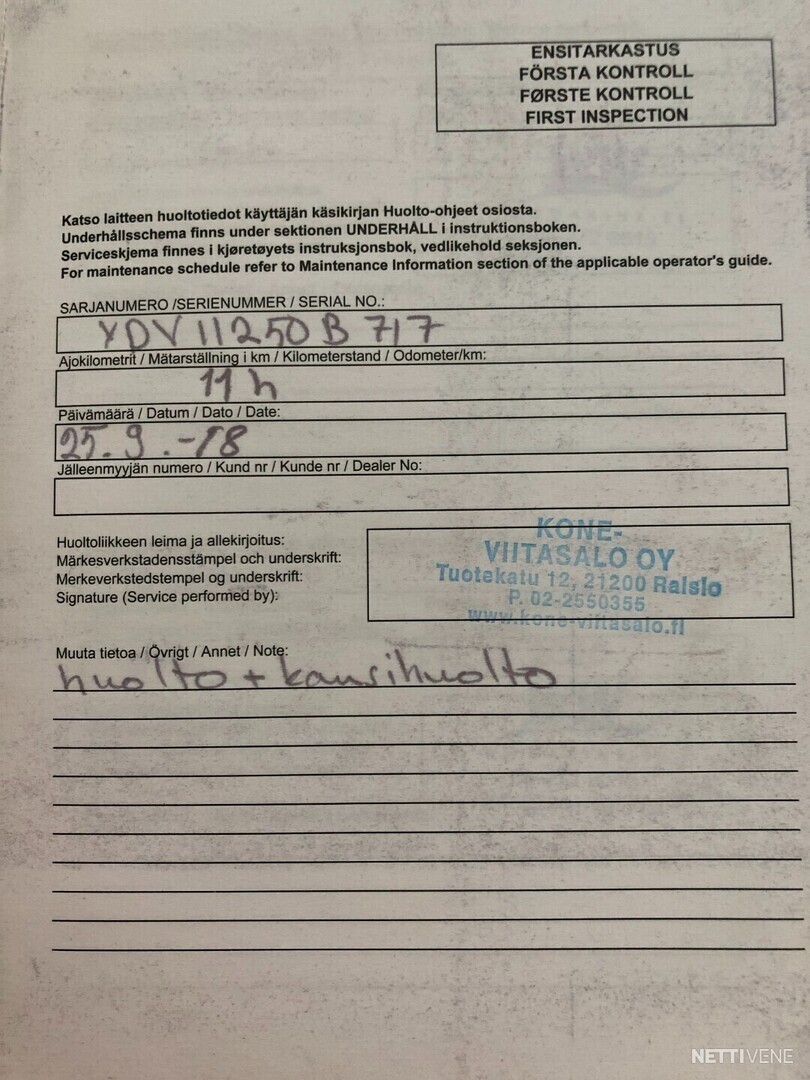 ENSITARKASTUS
FÖRSTA KONTROLL
FØRSTE KONTROLL
FIRST INSPECTION
Katso laitteen huoltotiedot käyttäjän käsikirjan Huolto-ohjeet osiosta.
Underhållsschema finns under sektionen UNDERHÅLL i instruktionsboken.
Serviceskjema finnes i kjøretøyets instruksjonsbok, vedlikehold seksjonen.
For maintenance schedule refer to Maintenance Information section of the applicable operator's guide.
SARJANUMERO /SERIENUMMER / SERIAL NO.:
YDV11250B717
Ajokilometrit / Mätarställning i km / Kilometerstand / Odometer/km:
11 h
Päivämäärä / Datum / Dato / Date:
25.9.-18
Jälleenmyyjän numero / Kund nr / Kunde nr / Dealer No:
Huoltoliikkeen leima ja allekirjoitus:
Märkesverkstadensstämpel och underskrift:
Merkeverkstedstempel og underskrift:
Signature (Service performed by):
KONE-
VIITASALO OY
Tuotekatu 12, 21200 Raisio
P. 02-2550355
www.kone-viitasalo.fi
Muuta tietoa / Övrigt / Annet / Note:
huolto + kansihuolto
NETTIVENE